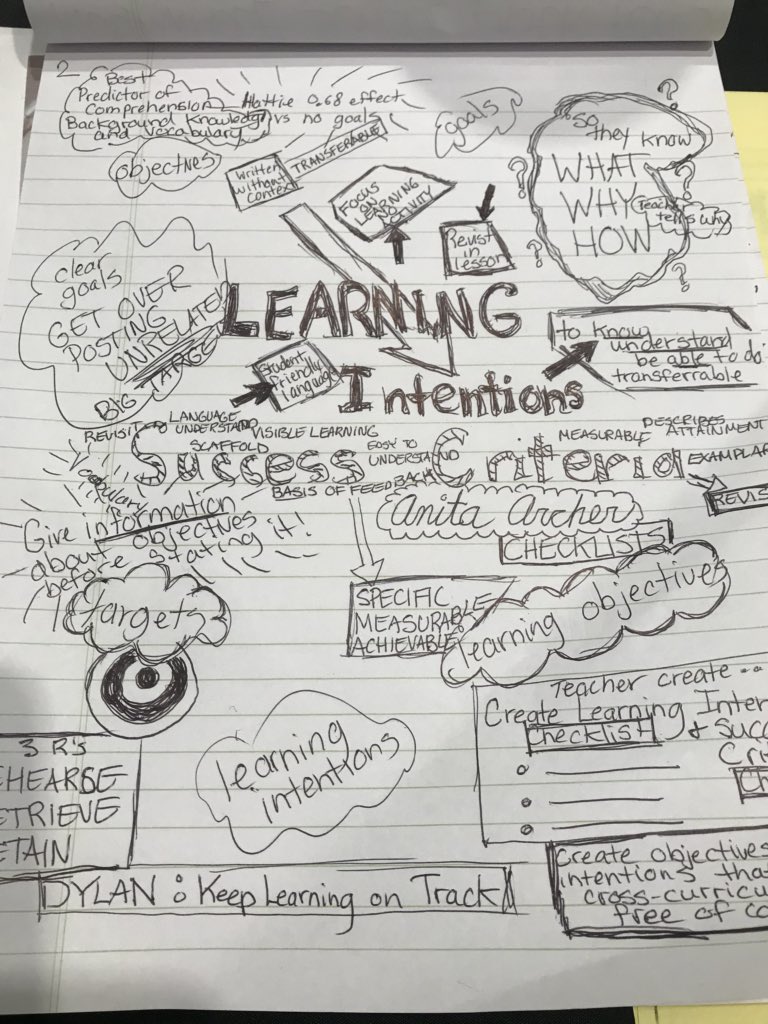 2
Best
Predictor of
Comprehension
Background Knowledge
and Vocabulary
Hattie 0.68 effect
vs no goals
goals
objectives
Written
without
context
TRANSFERABLE
FOCUS
ON
LEARNING
Revisit
in
lesson
So
they know
WHAT
WHY
HOW
tells why
? ? ? ? ? ?
clear
goals
GET OVER
POSTING
UNRELATED
BIG TARGET
LEARNING
Intentions
Student
friendly
language
to know
understand
be able to do
transferrable
REVISIT
LANGUAGE
UNDERSTAND
SCAFFOLD
VISIBLE LEARNING
EASY TO
UNDERSTAND
MEASURABLE
DESCRIBES
ATTAINMENT
Success Criteria
EXEMPLAR
BASIS OF FEEDBACK
REVIS
Vocabulary
Give information
about objectives
before stating it!
Anita Archer
CHECKLISTS
targets
SPECIFIC
MEASURABLE
ACHIEVABLE
learning objectives
Teacher create --
Create Learning Inten
checklist & Succ
Crit
Ch
3 R's
EHEARSE
ETRIEVE
ETAIN
learning
intentions
DYLAN : Keep Learning on Track
Create objectives
intentions tha
cross-curricu
free of co